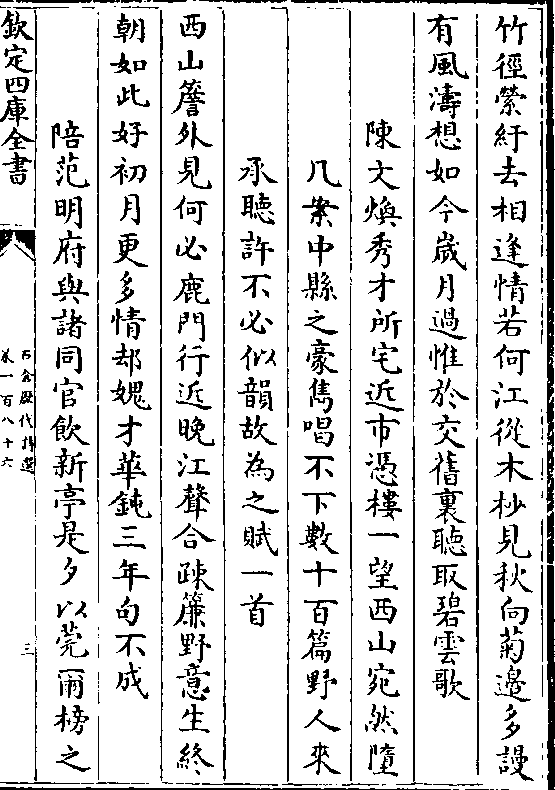 竹徑縈紆去相逢情若何江從木杪見秋向菊邊多謾
有風濤想如今歲月過惟於交舊裏聽取碧雲歌
陳文煥秀才所宅近市憑樓一望西山宛然墮
几案中縣之豪雋唱不下數十百篇野人來
承聽許不必似韻故為之賦一首
西山簷外見何必鹿門行近晚江聲合疎簾野意生終
朝如此好初月更多情却媿才華鈍三年句不成
陪范明府與諸同官飲新亭是夕以莞爾榜之
欽定四庫全書
石倉歷代詩選
卷一百八十六
三